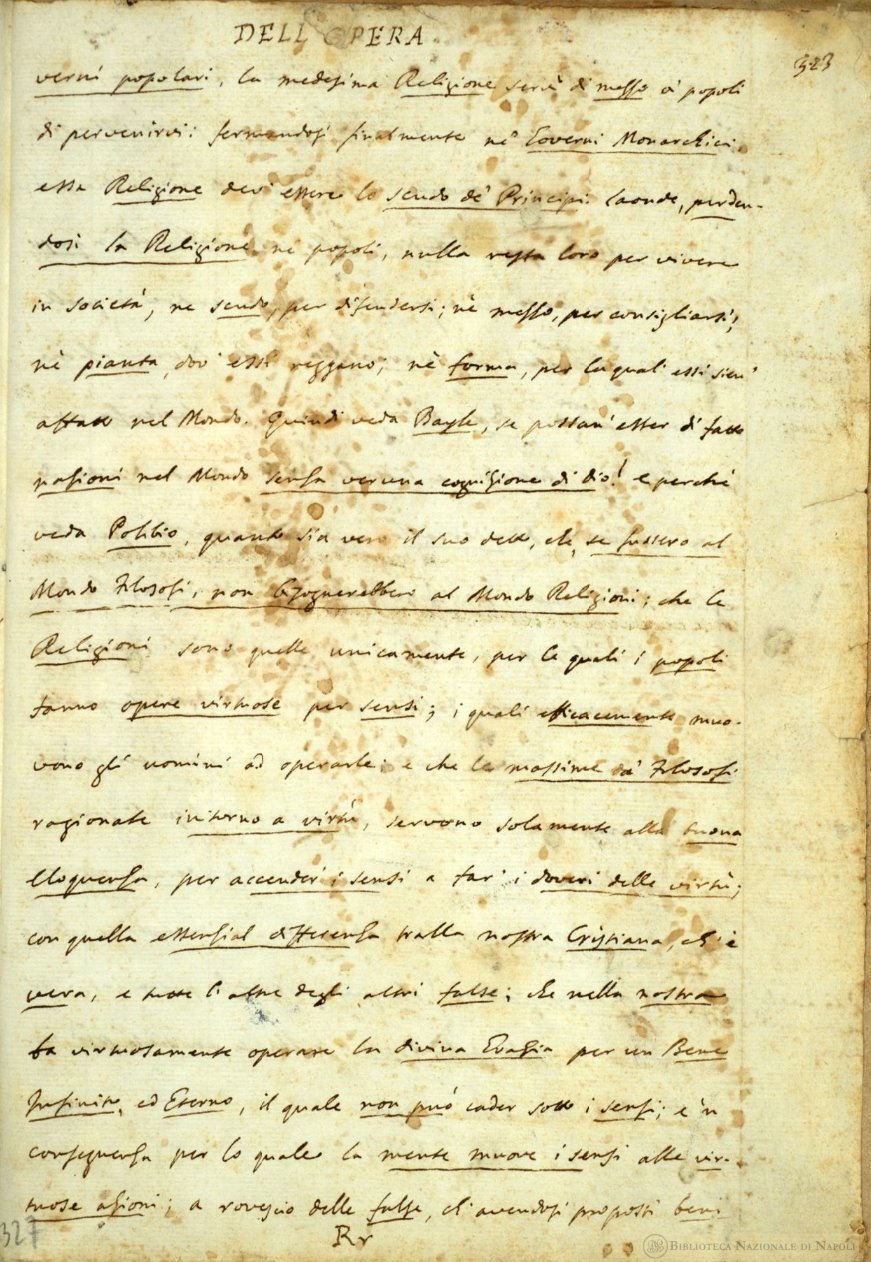 DELL OPERA
323
verni popolari, la medesima Religione servì di messo a' popoli
di pervenirvi: fermandosi finalmente ne' Governi Monarchici,
essa Religione dev' essere lo scudo de' Principi. Laonde, perden-
dosi la Religione ne' popoli, nulla resta loro per vivere
in società, nè scudo, per difendersi; nè messo, per consigliarsi;
nè pianta, dov' essi reggano; nè forma, per la quali essi sien'
affatto nel Mondo. Quindi veda Bayle, se possan' esser di fatto
nazioni nel Mondo senza veruna cognizione di Dio! e perchè
veda Polibio, quanto sia vero il suo detto, che, se fussero al
Mondo Filosofi, non bisognerebbero al Mondo Religioni; che le
Religioni sono quelle unicamente, per le quali i popoli
fanno opere virtuose per sensi; i quali efficacemente muo-
vono gli uomini ad operarle: e che le massime da' Filosofi
ragionate intorno a virtù, servono solamente alla buona
Eloquenza, per accender' i sensi a far' i doveri delle virtù;
con quella essenzial differenza tralla nostra Cristiana, ch' è
vera, e tutte l' altre degli altri false; che nella nostra
fa virtuosamente operare la divina Grazia per un Bene
Infinito, ed Eterno, il quale non può cader sotto i sensi; e 'n
conseguenza per lo quale la mente muove i sensi alle vir-
tuose azioni; a rovescio delle false, ch' avendosi proposti beni
Rr
327
BIBLIOTECA NAZIONALE DI NAPOLI